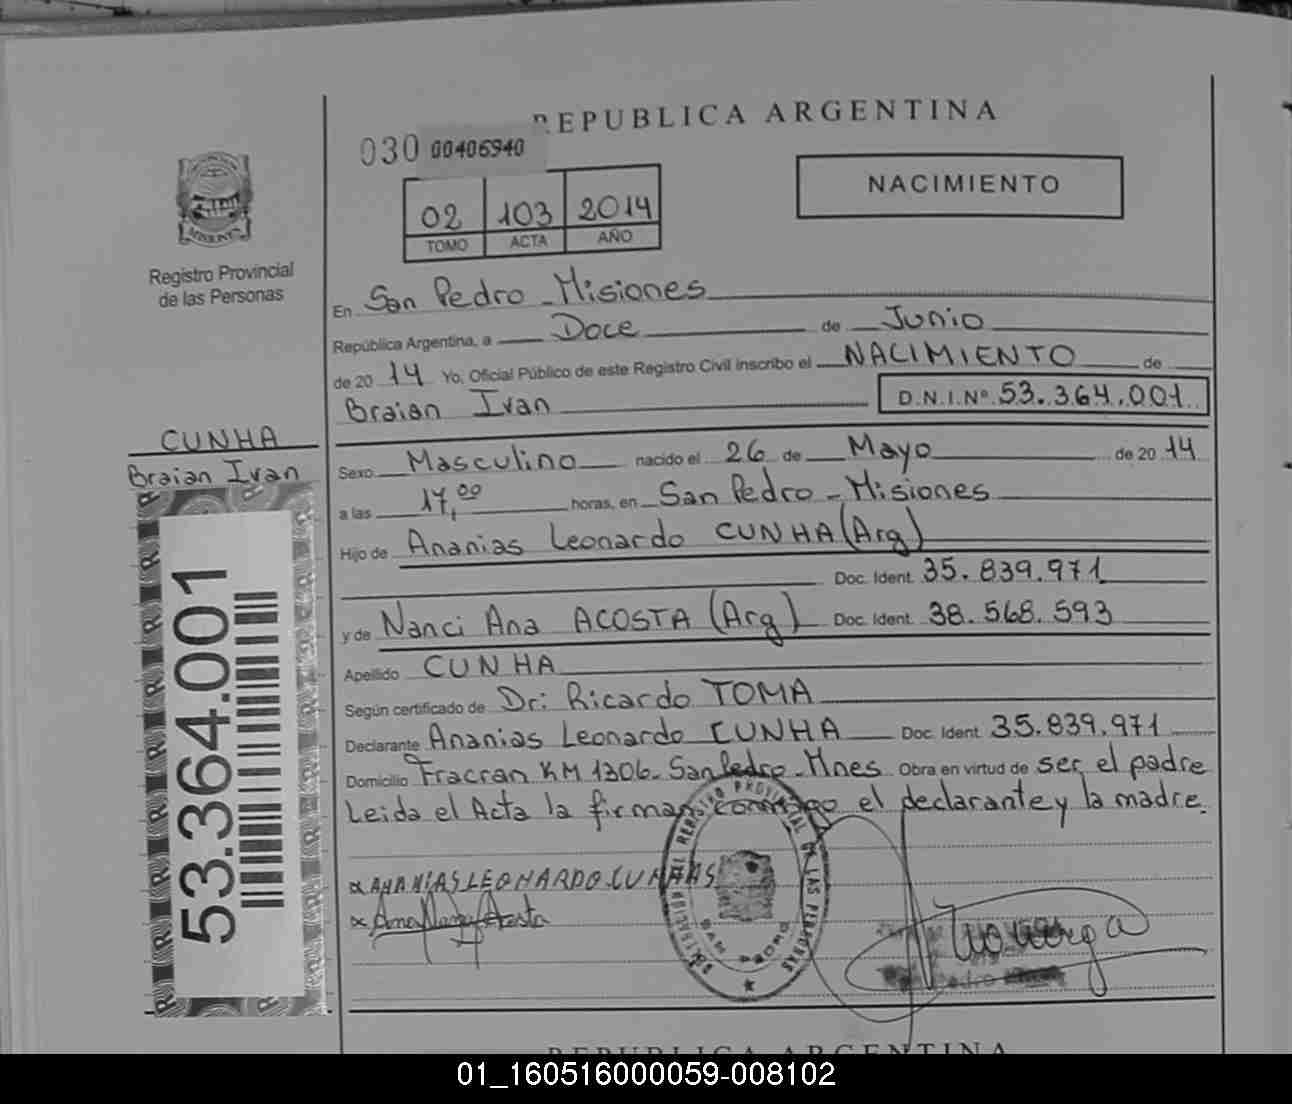 REPUBLICA ARGENTINA
030 00406940
NACIMIENTO
02 103 2014
TOMO ACTA AÑO
MISIONES
Registro Provincial
de las Personas
En San Pedro - Misiones
República Argentina, a Doce de Junio
de 20 14 Yo, Oficial Público de este Registro Civil inscribo el NACIMIENTO de
Braian Ivan D.N.I.Nº 53.364.001
CUNHA
Braian Ivan
53.364.001
Sexo Masculino nacido el 26 de Mayo de 20 14
a las 17,00 horas, en San Pedro - Misiones
Hijo de Ananias Leonardo CUNHA (Arg)
Doc. Ident. 35.839.971
y de Nanci Ana ACOSTA (Arg) Doc. Ident. 38.568.593
Apellido CUNHA
Según certificado de Dr: Ricardo TOMA
Declarante Ananias Leonardo CUNHA Doc. Ident. 35.839.971
Domicilio Fracran KM 1306 - San Pedro - Mnes Obra en virtud de ser el padre
Leida el Acta la firman conmigo el declarante y la madre.
ANANIAS LEONARDO CUNHAS
Acosta
REGISTRO PROVINCIAL DE LAS PERSONAS
SAN PEDRO
REPUBLICA ARGENTINA
01_160516000059-008102